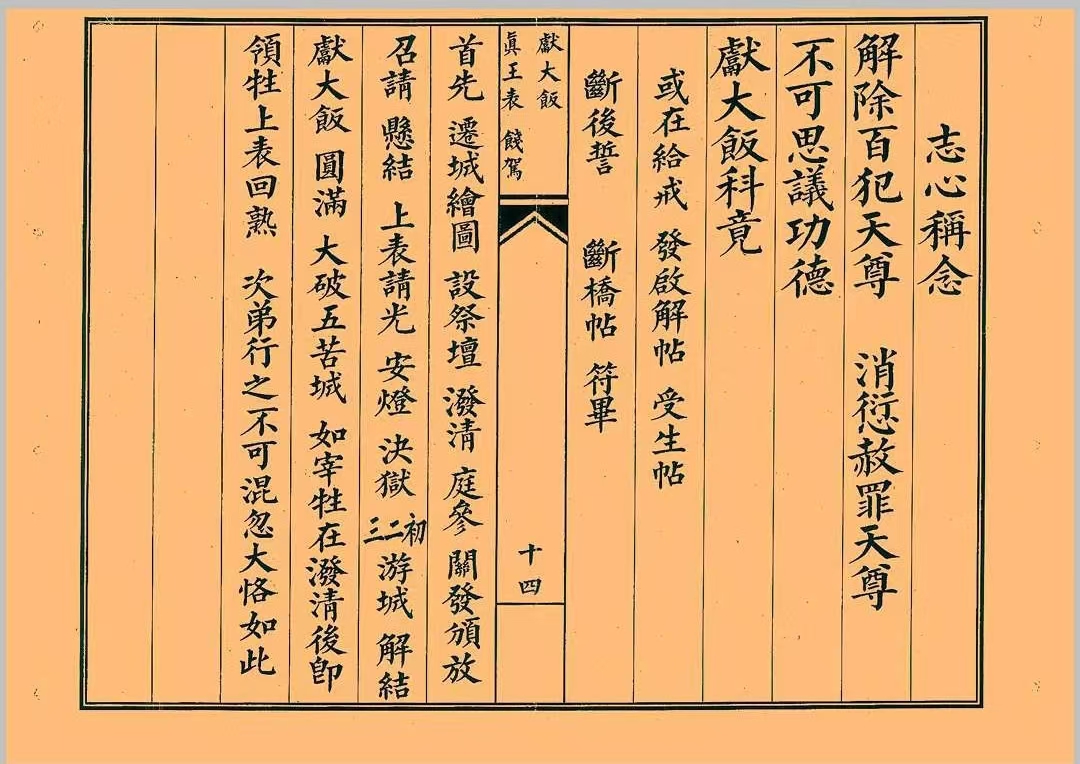 志心稱念
解除百犯天尊　消愆赦罪天尊
不可思議功德
獻大飯科竟
或在給戒　發啟解帖　受生帖
斷後誓　斷橋帖　符畢
獻大飯
眞王表　餞駕
十四
首先　遷城繪圖　設祭壇　潑清　庭參　關發頒放
召請　懸結　上表請光　安燈　決獄　初二三游城　解結
獻大飯　圓滿　大破五苦城　如宰牲在潑清後卽
領牲上表回熟　次弟行之不可混忽大恪如此